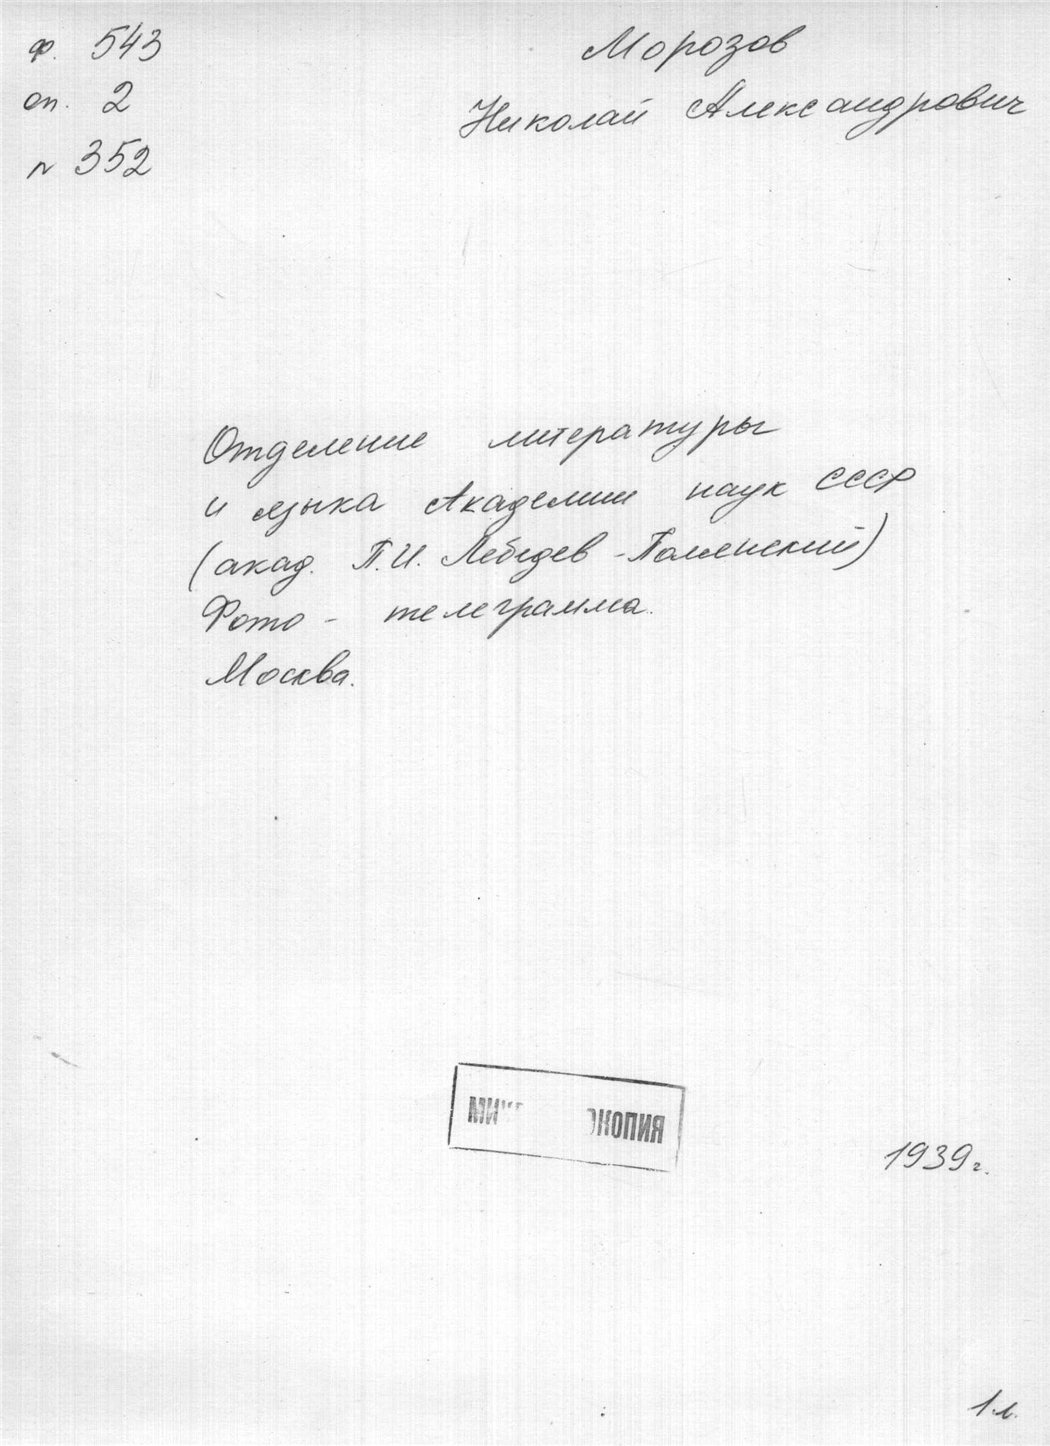 ф. 543
оп. 2
№ 352
Морозов
Николай Александрович
Отделение литературы
и языка Академии наук СССР
(акад. П.И. Лебедев-Полянский)
Фото-телеграмма.
Москва.
1939г.
1 л.